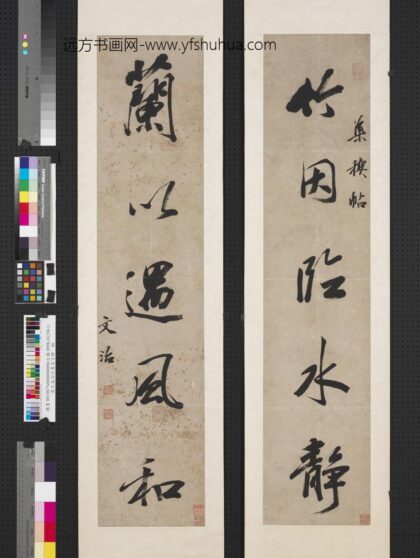 远方书画网-www.yfshuhua.com
竹因臨水靜
集禊帖
蘭以遇風和
文治